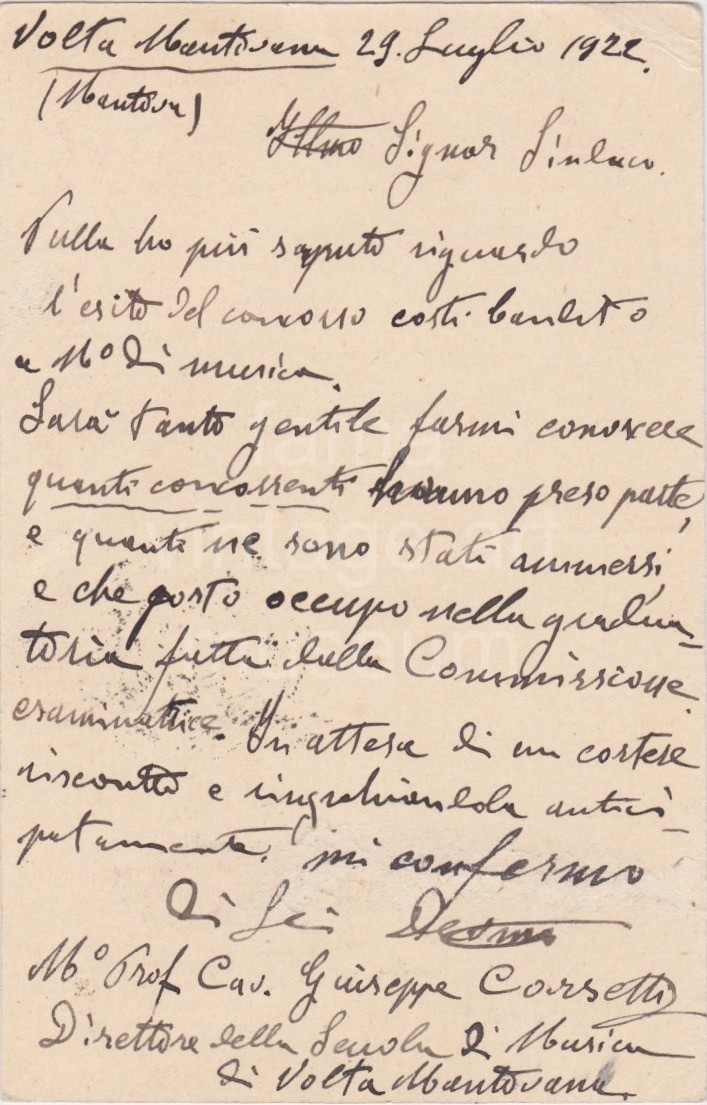 Volta Mantovana 29. Luglio 1922.
(Mantova)
Illmo Signor Sindaco.
Nulla ho più saputo riguardo
l'esito del concorso costì bandito
a M° di musica.
Sarà tanto gentile farmi conoscere
quanti concorrenti hanno preso parte,
e quanti ne sono stati ammessi,
e che posto occupo nella gradua-
toria fatta dalla Commissione
esaminatrice. In attesa di un cortese
riscontro e ringraziandola antici-
patamente, mi confermo
Di Lei Devmo
M° Prof Cav. Giuseppe Corsetti
Direttore della Scuola di Musica
di Volta Mantovana.